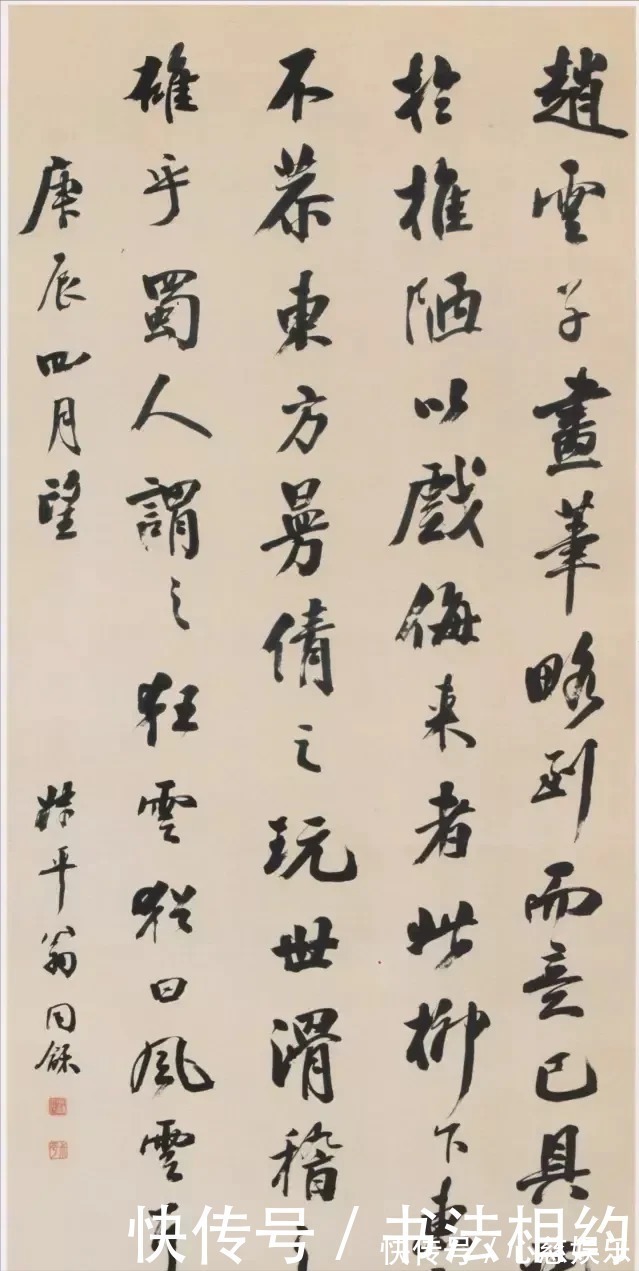 趙雲子畫筆略到而意已具
於推陋以戲侮來者此柳下惠
不恭東方曼倩之玩世滑稽之
雄乎蜀人謂之狂雲猶曰風雲耳
庚辰四月望
叔平翁同龢
快传号 / 书法相约
快传号 / 心慈娱乐